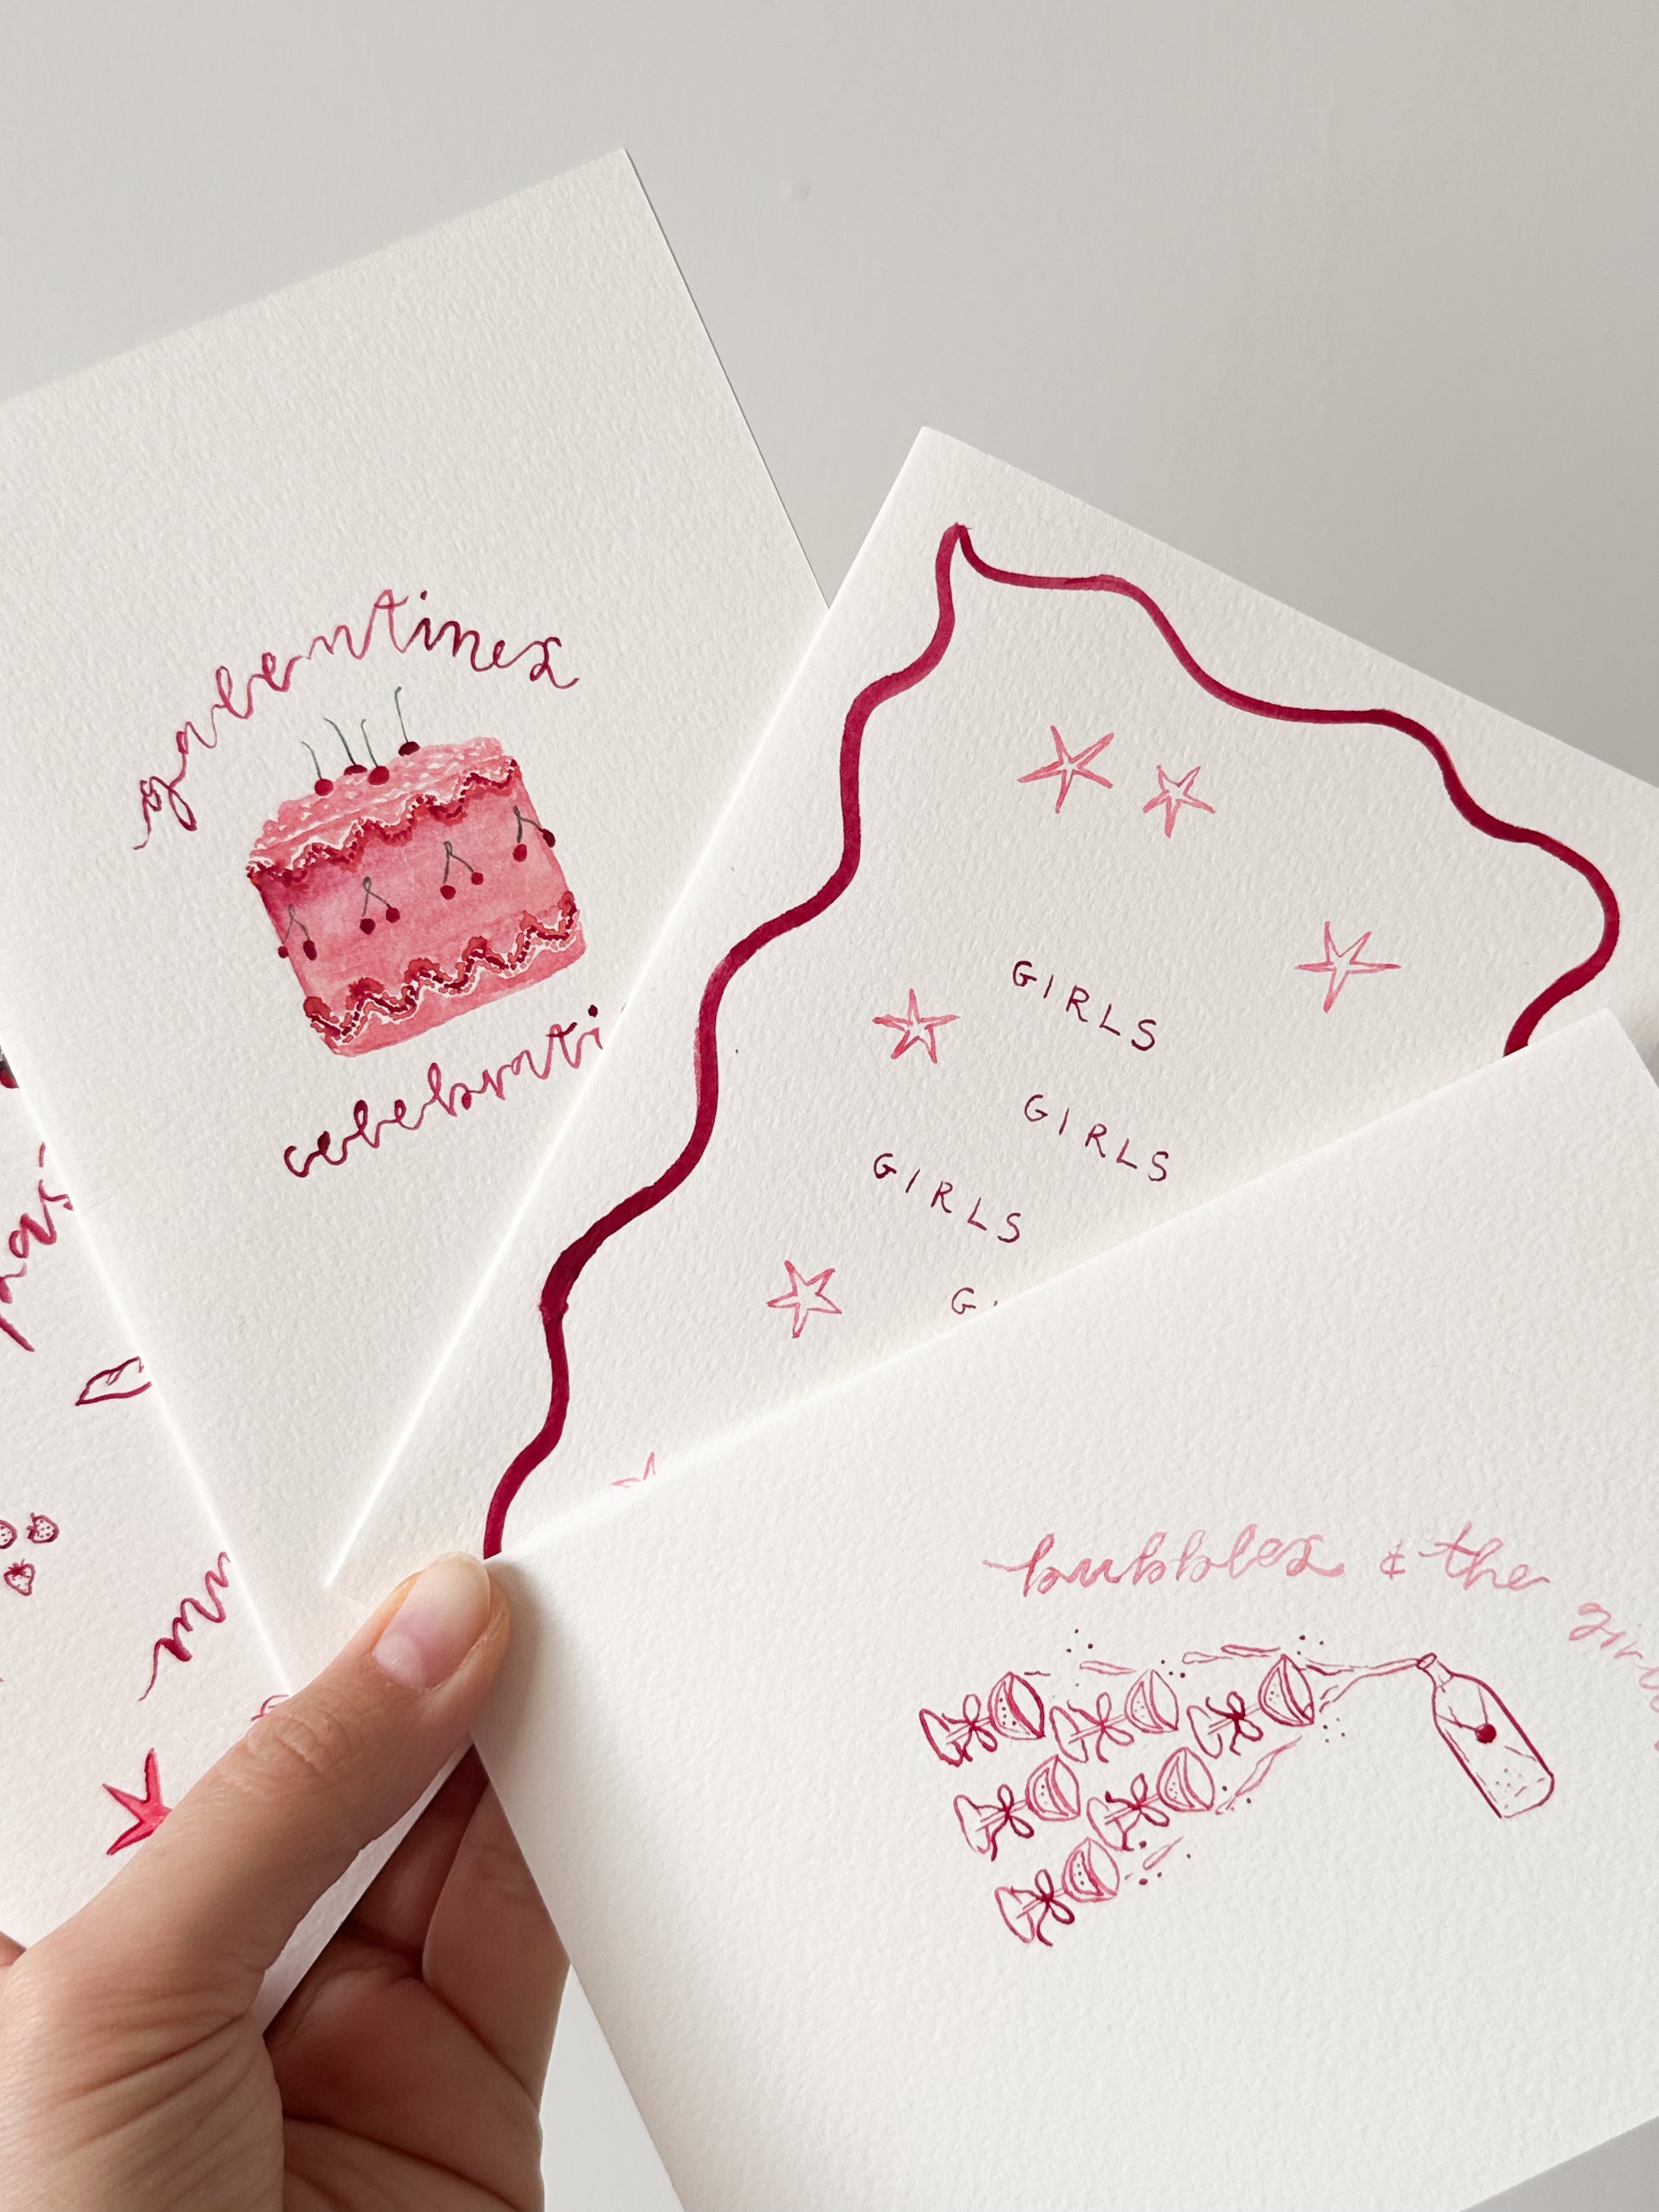 galentines
celebrati
GIRLS
GIRLS
GIRLS
G
bubbles & the
girls